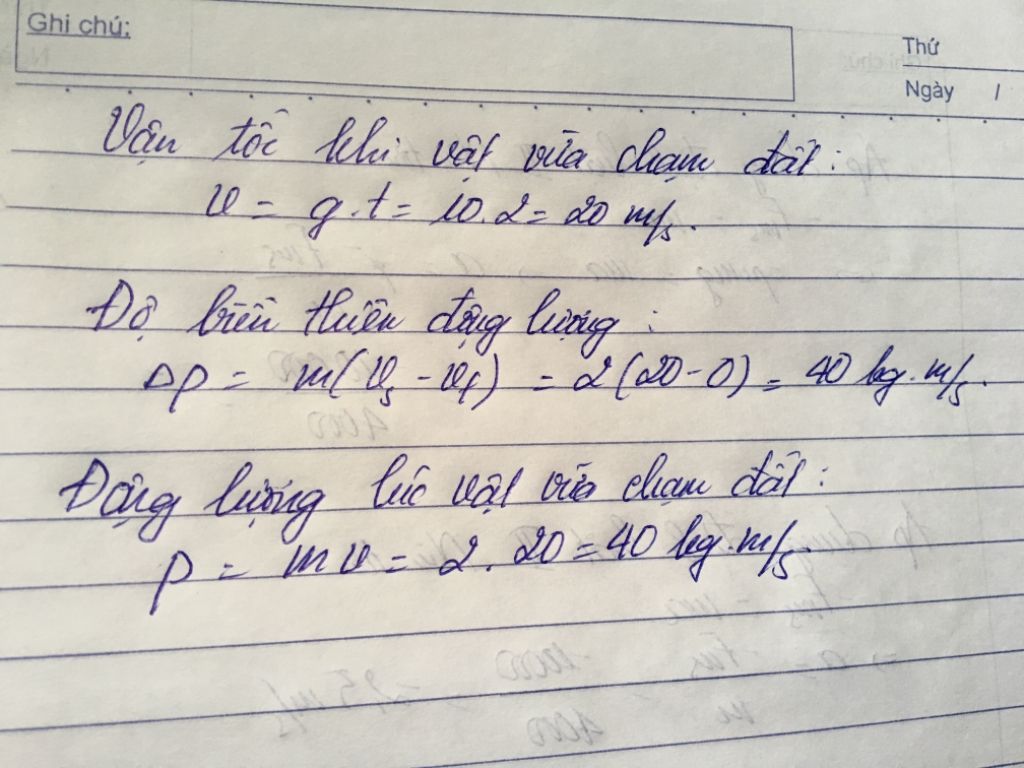 Ghi chú:
Thứ
Ngày /
Vận tốc khi vật vừa chạm đất:
v = g.t = 10.2 = 20 m/s.
Độ biến thiên động lượng:
Δp = m(vs - vt) = 2(20-0) = 40 kg.m/s.
Động lượng lúc vật vừa chạm đất:
p = mv = 2.20 = 40 kg.m/s.